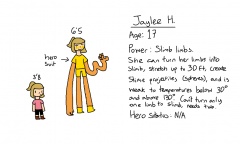 Jaylee H.
6'5
Age: 17
hero suit
Power: Slimb limbs.
She can turn her limbs into
slimb, stretch up to 30 ft, create
Slime projectiles (spheres), and is
weak to temperatures below 30°
and above 130°. Can't turn only
one limb to slimb, needs two.
Hero Statistics: N/A
3'8